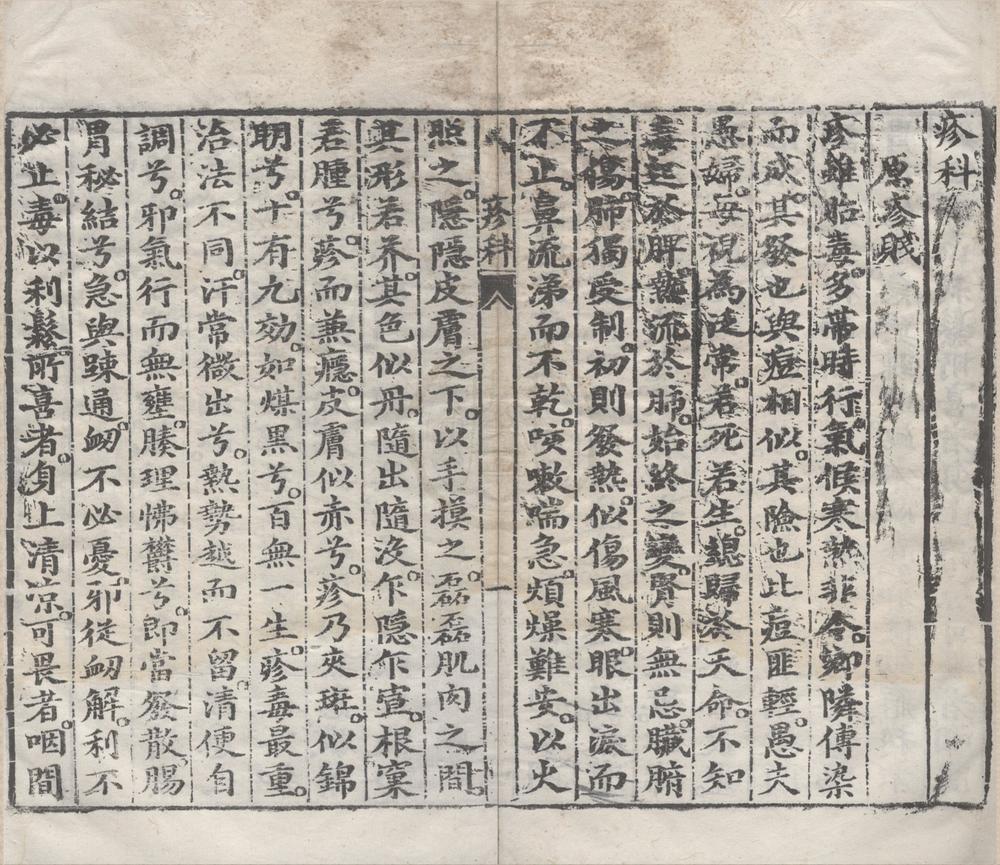 疹科
原疹賦
疹雖胎毒多帶時行氣候寒熱非令鄉隣傳染
而成其發也與痘相似其險也比痘匪輕愚夫
愚婦每視為泛常若死若生總歸於天命不知
毒起於脾熱流於肺始終之變腎則無忌臟腑
之傷肺獨受制初則發熱似傷風寒眼出淚而
不止鼻流涕而不乾咳嗽喘急煩燥難安以火
疹科 一
照之隱隱皮膚之下以手摸之磊磊肌肉之間
其形若芥其色似丹隨出隨沒乍隱乍宣根窠
若腫兮疹而兼癮皮膚似赤兮疹乃夾斑似錦
明兮十有九効如煤黑兮百無一生疹毒最重
治法不同汗常微出兮熱勢越而不留清便自
調兮邪氣行而無壅腠理怫欝兮即當發散腸
胃秘結兮急與疎通衂不必憂邪從衂解利不
必止毒以利鬆所喜者身上清凉可畏者咽間